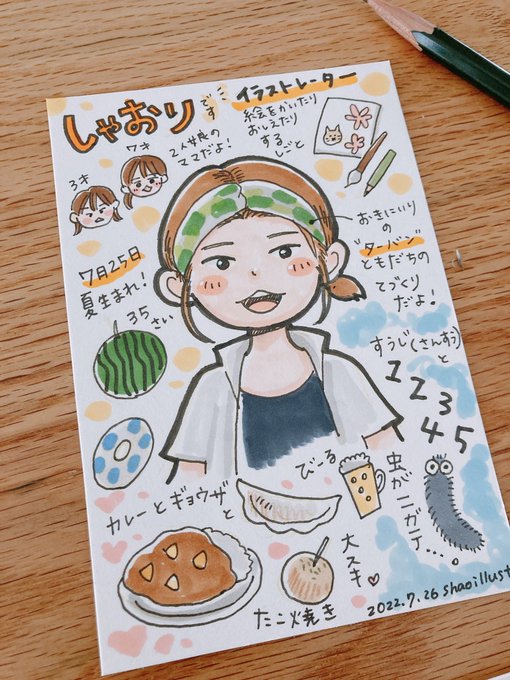 しゃおり
です
イラストレーター
絵をかいたり
おしえたり
する
しごと
2人娘の
ママだよ!
7才
3才
おきにいり
の
"ターバン"
ともだちの
てづくり
だよ!
7月25日
夏生まれ!
35さい
すうじ(さんすう)
と
1
2
3
4
5
虫がニガテ...。
びーる
カレーとギョウザ
と
大スキ♥
たこ焼き
2022.7.26 shaoillust